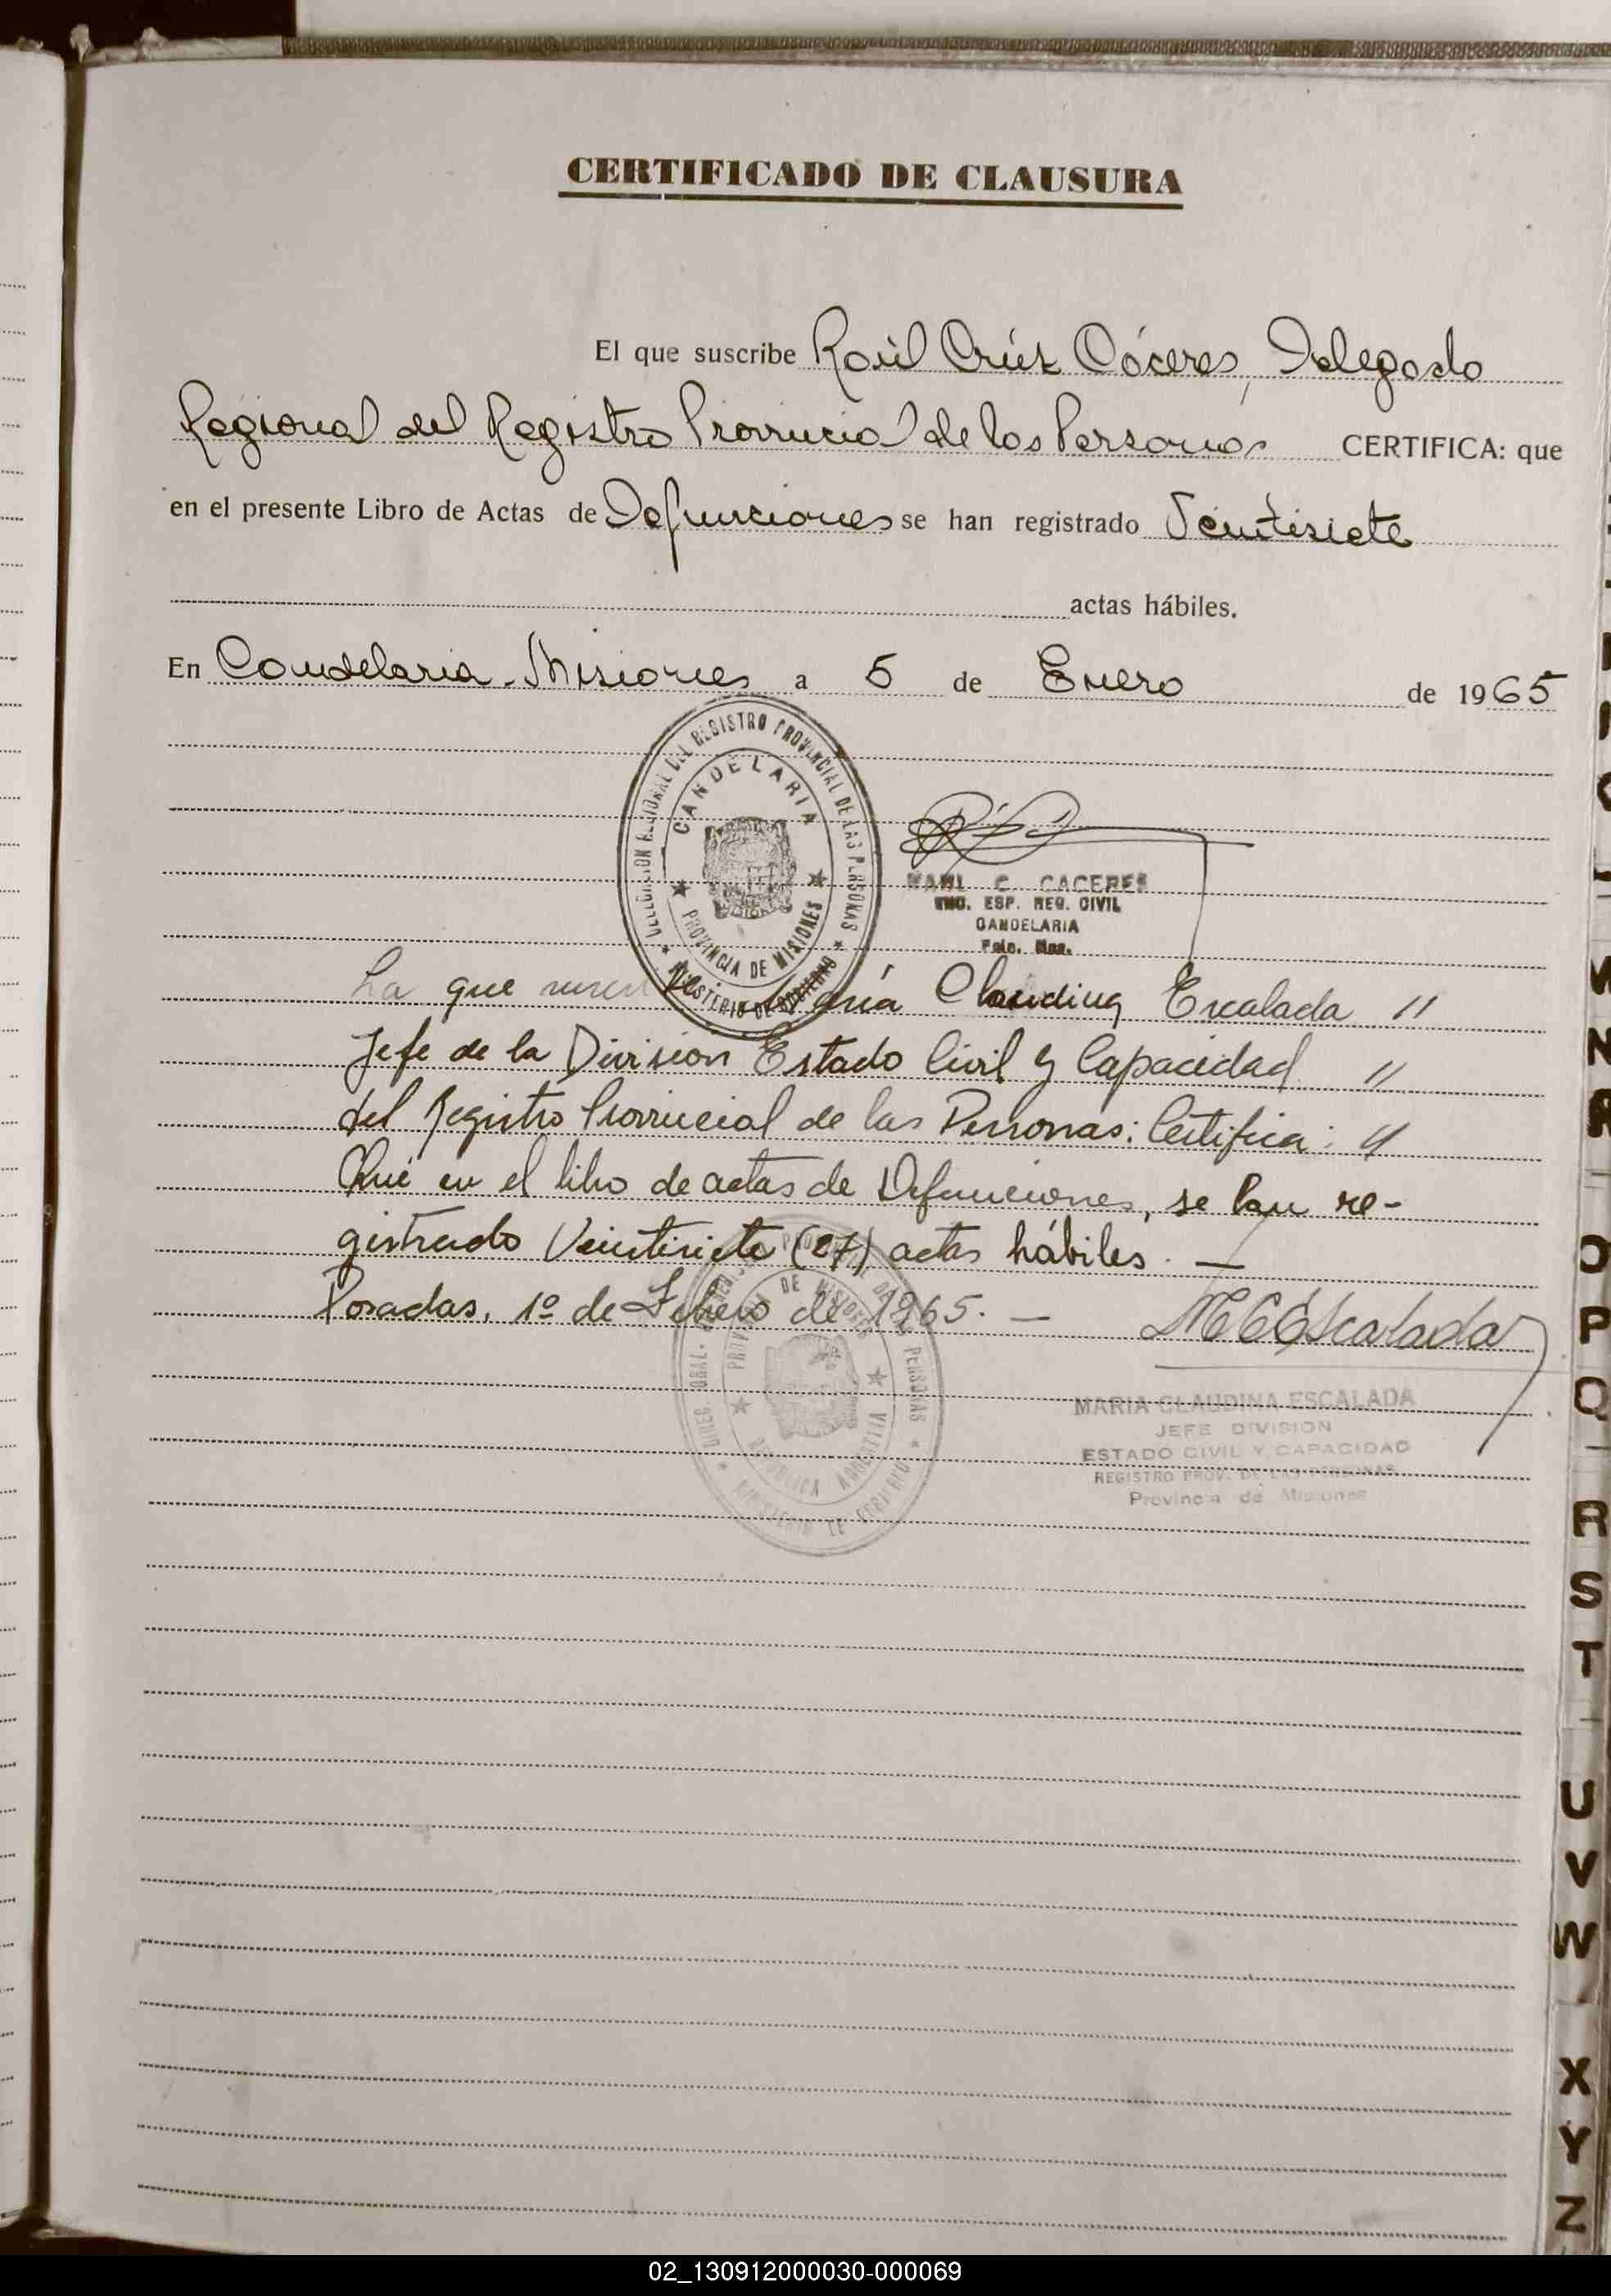 CERTIFICADO DE CLAUSURA
El que suscribe Raúl Crúz Cáceres, Delegado
Regional del Registro Provincial de las Personas CERTIFICA: que
en el presente Libro de Actas de Defunciones se han registrado Veintisiete
actas hábiles.
En Candelaria - Misiones a 5 de Enero de 1965
DELEGACION REGIONAL DEL REGISTRO PROVINCIAL DE LAS PERSONAS
CANDELARIA
PROVINCIA DE MISIONES
MINISTERIO DE GOBIERNO
RAUL C. CACERES
ENC. ESP. REG. CIVIL
CANDELARIA
Pcia. Mnes.
La que María Claudina Escalada //
Jefe de la Division Estado Civil y Capacidad //
del Registro Provincial de las Personas: Certifica: //
Que en el libro de actas de Defunciones, se han re-
gistrado Veintisiete (27) actas hábiles. —
Posadas, 1º de Febrero de 1965. — MCEscalada
PROVINCIA DE MISIONES
REPUBLICA ARGENTINA
MINISTERIO DE GOBIERNO
MARIA CLAUDINA ESCALADA
JEFE DIVISION
ESTADO CIVIL Y CAPACIDAD
REGISTRO PROV. DE LAS PERSONAS
Provincia de Misiones
O
P
Q
R
S
T
U
V
W
X
Y
Z
02_130912000030-000069